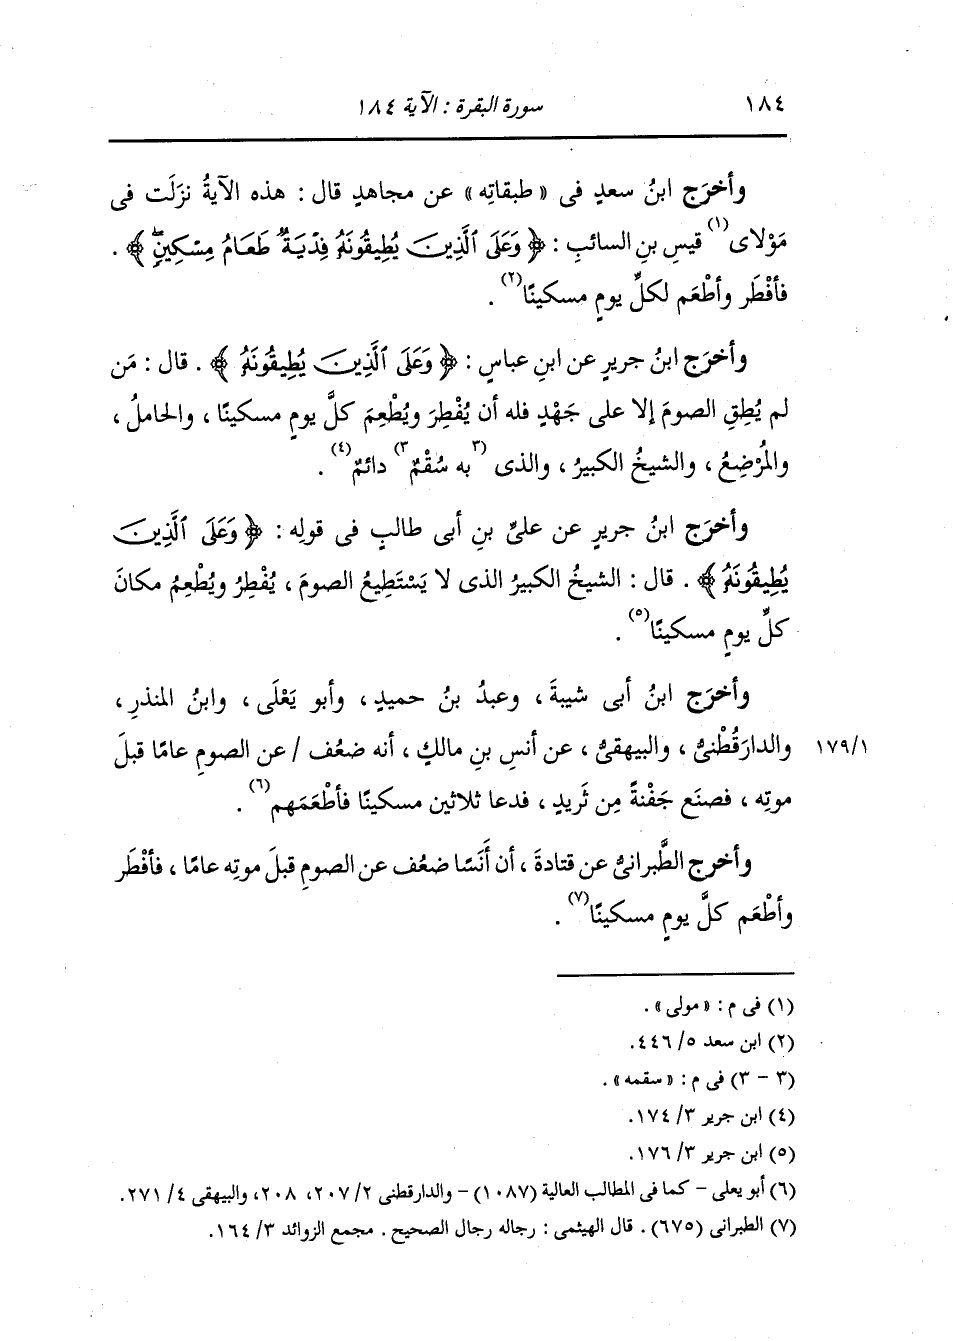 ١٨٤ سورة البقرة : الآية ١٨٤
وأخرَج ابنُ سعدٍ فى « طبقاتِه » عن مجاهدٍ قال : هذه الآيةُ نزَلَت فى
مَوْلاى(١) قيسِ بنِ السائبِ : ﴿ وَعَلَى ٱلَّذِينَ يُطِيقُونَهُۥ فِدْيَةٌ طَعَامُ مِسْكِينٍۖ ﴾ .
فأفْطَر وأطْعَم لكلِّ يومٍ مسكينًا(٢) .
وأخرَج ابنُ جريرٍ عن ابنِ عباسٍ : ﴿ وَعَلَى ٱلَّذِينَ يُطِيقُونَهُۥ ﴾ . قال : مَن
لم يُطِقِ الصومَ إلا على جَهْدٍ فله أن يُفْطِرَ ويُطْعِمَ كلَّ يومٍ مسكينًا ، والحاملُ ،
والمُرْضِعُ ، والشيخُ الكبيرُ ، والذى (٣به سُقْمٌ٣) دائمٌ(٤) .
وأخرَج ابنُ جريرٍ عن علىِّ بنِ أبى طالبٍ فى قولِه : ﴿ وَعَلَى ٱلَّذِينَ
يُطِيقُونَهُۥ ﴾ . قال : الشيخُ الكبيرُ الذى لا يَسْتَطِيعُ الصومَ ، يُفْطِرُ ويُطْعِمُ مكانَ
كلِّ يومٍ مسكينًا(٥) .
وأخرَج ابنُ أبى شيبةَ ، وعبدُ بنُ حميدٍ ، وأبو يَعْلَى ، وابنُ المنذرِ ،
١٧٩/١ والدارَقُطْنىُّ ، والبيهقىُّ ، عن أنسِ بنِ مالكٍ ، أنه ضعُف / عن الصومِ عامًا قبلَ
موتِه ، فصنَع جَفْنةً مِن ثَريدٍ ، فدعا ثلاثين مسكينًا فأطْعَمَهم(٦) .
وأخرج الطَّبرانىُّ عن قتادةَ ، أن أَنَسًا ضعُف عن الصومِ قبلَ موتِه عامًا ، فأفْطَر
وأطْعَم كلَّ يومٍ مسكينًا(٧) .
(١) فى م : « مولى » .
(٢) ابن سعد ٥/ ٤٤٦.
(٣ - ٣) فى م : « سقمه » .
(٤) ابن جرير ٣/ ١٧٤.
(٥) ابن جرير ٣/ ١٧٦.
(٦) أبو يعلى - كما فى المطالب العالية (١٠٨٧) - والدارقطنى ٢/ ٢٠٧، ٢٠٨، والبيهقى ٤/ ٢٧١.
(٧) الطبرانى (٦٧٥) . قال الهيثمى : رجاله رجال الصحيح . مجمع الزوائد ٣/ ١٦٤.